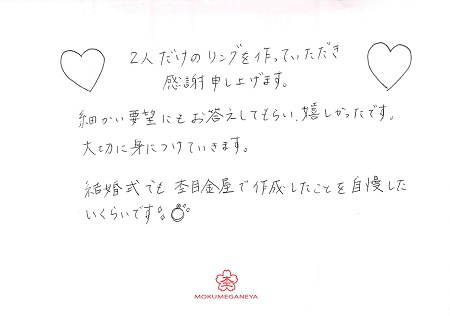 2人だけのリングを作っていただき
感謝申し上げます。
細かい要望にもお答えしてもらい、嬉しかったです。
大切に身につけていきます。
結婚式でも杢目金屋で作成したことを自慢した
いくらいです。
杢
MOKUMEGANEYA